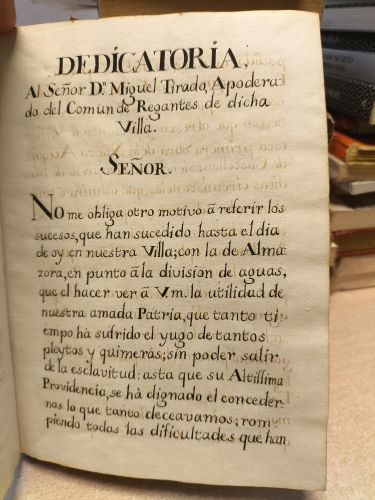 DEDICATORIA,
Al Señor Dn Miguel Tirado, Apodera-
do del Comun de Regantes de dicha
Villa.
SEÑOR.
No me obliga otro motivo â referir los
sucesos, que han sucedido hasta el dia
de oy en nuestra Villa; con la de Alma
zora, en punto âla division de aguas,
que el hacer ver â Vm. la utilidad de
nuestra amada Patria, que tanto ti
empo hà sufrido el yugo de tantos
pleytos y quimeràs; sin poder salir
de la esclavitud: asta que su Altissima
Providencia, se hà dignado el conceder
nos lo que tanto deceavamos; rom
piendo todas las dificultades que han